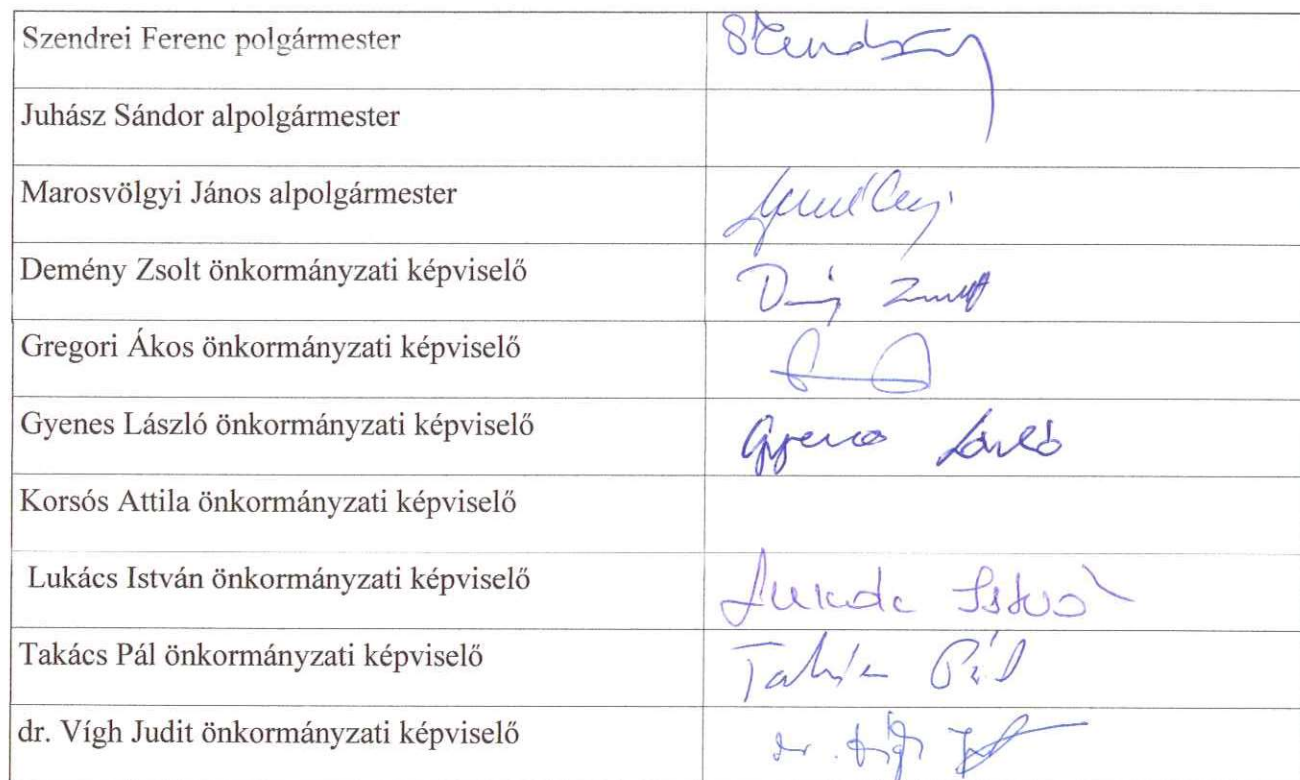 Szendrei Ferenc polgármester
Juhász Sándor alpolgármester
Marosvölgyi János alpolgármester
Demény Zsolt önkormányzati képviselő
Gregori Ákos önkormányzati képviselő
Gyenes László önkormányzati képviselő Gyenes László
Korsós Attila önkormányzati képviselő
Lukács István önkormányzati képviselő Lukács István
Takács Pál önkormányzati képviselő Takács Pál
dr. Vígh Judit önkormányzati képviselő dr. Vígh